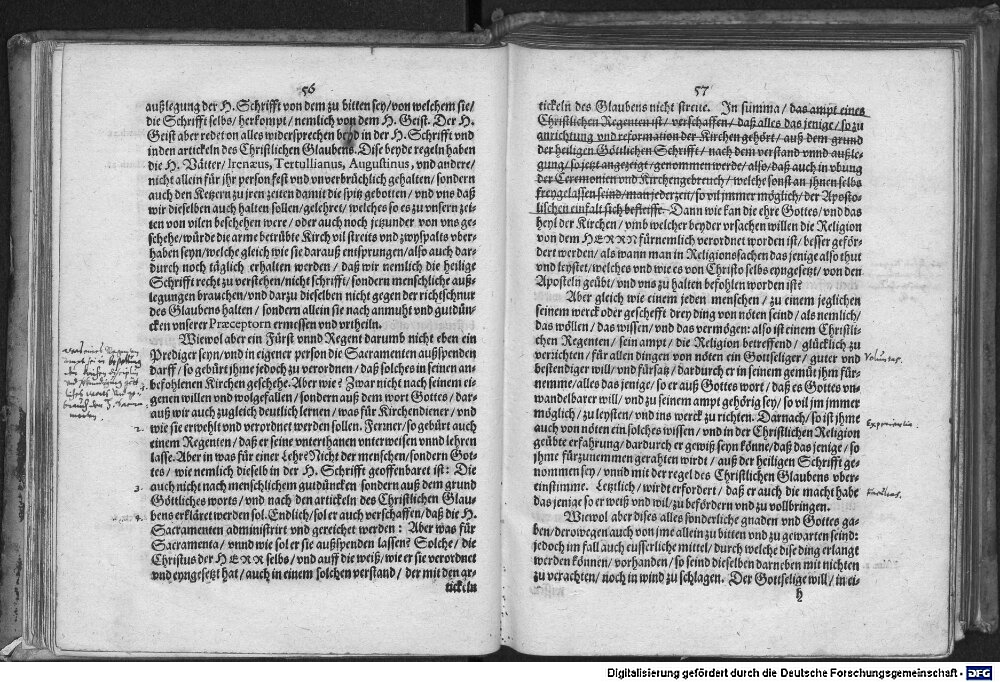 56
außlegung der H. Schrifft von dem zu bitten sey/ von welchem sie/
die Schrifft selbs/ herkompt/ nemlich von dem H. Geist. Der H.
Geist aber redet on alles widersprechen beyd in der H. Schrifft vnd
in den artickeln des Christlichen Glaubens. Dise beyde regeln haben
die H. Vätter/ Irenæus, Tertullianus, Augustinus, vnd andere/
nicht allein für jhr person fest vnd vnverbrüchlich gehalten/ sondern
auch den Ketzern zu jren zeiten damit die spitz gebotten/ vnd vns daß
wir dieselben auch halten sollen/ gelehret/ welches so es zu vnsern zei-
ten von vilen beschehen were/ oder auch noch jetzunder von vns ge-
schehe/ würde die arme betrübte Kirch vil streits vnd zwyspalts vber-
haben seyn/ welche gleich wie sie darauß entsprungen/ also auch dar-
durch noch täglich erhalten werden/ daß wir nemlich die heilige
Schrifft recht zu verstehen/ nicht schrifft/ sondern menschliche auß-
legungen brauchen/ vnd darzu dieselben nicht gegen der richtschnur
des Glaubens halten/ sondern allein sie nach anmuht vnd gutdün-
cken vnserer Præceptorn ermessen vnd vrtheiln.
Wiewol aber ein Fürst vnnd Regent darumb nicht eben ein
Prediger seyn/ vnd in eigener person die Sacramenten außspenden
darff/ so gebürt jhme jedoch zu verordnen/ daß solches in seinen an-
befohlenen Kirchen geschehe. Aber wie? Zwar nicht nach seinem ei-
genen willen vnd wolgefallen/ sondern auß dem wort Gottes/ dar-
auß wir auch zugleich deutlich lernen/ was für Kirchendiener/ vnd
2. wie sie erwehlt vnd verordnet werden sollen. Ferner/ so gebürt auch
einem Regenten/ daß er seine vnterthanen vnterweisen vnnd lehren
lasse. Aber in was für einer Lehre? Nicht der menschen/ sondern Got-
tes/ wie nemlich dieselb in der H. Schrifft geoffenbaret ist: Die
3. auch nicht nach menschlichem gutdüncken sondern auß dem grund
Göttliches worts/ vnd nach den artickeln des Christlichen Glau-
4. bens erkläret werden sol. Endlich/ sol er auch verschaffen/ daß die H.
Sacramenten administrirt vnd gereichet werden: Aber was für
Sacramenta/ vnnd wie sol er sie außspenden lassen? Solche/ die
Christus der HERR selbs/ vnd auff die weiß/ wie er sie verordnet
vnd eyngesetzt hat/ auch in einem solchen verstand/ der mit den ar-
tickeln
57
tickeln des Glaubens nicht streite. In summa/ das ampt eines
Christlichen Regenten ist/ verschaffen/ daß alles das jenige/ so zu
anrichtung vnd reformation der Kirchen gehört/ auß dem grund
der heiligen Göttlichen Schrifft/ nach dem verstand vnnd außle-
gung/ so jetzt angezeigt/ genommen werde/ also/ daß auch in vbung
der Ceremonien vnd Kirchengebreuch/ welche sonst an jhnen selbs
freygelassen seind/ man jederzeit/ so vil jmmer möglich/ der Aposto-
lischen einfalt sich befleisse. Dann wie kan die ehre Gottes/ vnd das
heyl der Kirchen/ vmb welcher beyder vrsachen willen die Religion
von dem HERRN fürnemlich verordnet worden ist/ besser geför-
dert werden/ als wann man in Religionssachen das jenige also thut
vnd leystet/ welches vnd wie es von Christo selbs eyngesetzt/ von den
Aposteln geübt/ vnd vns zu halten befohlen worden ist?
Aber gleich wie einem jeden menschen/ zu einem jeglichen
seinem werck oder geschefft drey ding von nöten seind/ als nemlich/
das wöllen/ das wissen/ vnd das vermögen: also ist einem Christli-
chen Regenten/ sein ampt/ die Religion betreffend/ glücklich zu
verrichten/ für allen dingen von nöten ein Gottseliger/ guter vnd
bestendiger will/ vnd fürsatz/ dardurch er in seinem gemüt jhm für-
nemme/ alles das jenige/ so er auß Gottes wort/ daß es Gottes vn-
wandelbarer will/ vnd zu seinem ampt gehörig sey/ so vil jm jmmer
möglich/ zu leysten/ vnd ins werck zu richten. Darnach/ so ist jhme
auch von nöten ein solches wissen/ vnd in der Christlichen Religion
geübte erfahrung/ dardurch er gewiß seyn könne/ daß das jenige/ so
jhme fürzunemmen gerahten wirdt/ auß der heiligen Schrifft ge-
nommen sey/ vnnd mit der regel des Christlichen Glaubens vber-
einstimme. Letztlich/ wirdt erfordert/ daß er auch die macht habe
das jenige so er weiß vnd wil/ zu befördern vnd zu vollbringen.
Wiewol aber dises alles sonderliche gnaden vnd Gottes ga-
ben/ derowegen auch von jme allein zu bitten vnd zu gewarten seind:
jedoch im fall auch eusserliche mittel/ durch welche dise ding erlangt
werden können/ vorhanden/ so seind dieselben darneben mit nichten
zu verachten/ noch in wind zu schlagen. Der Gottselige will/ in ei-
h
Voluntas.
Digitalisierung gefördert durch die Deutsche Forschungsgemeinschaft - DFG